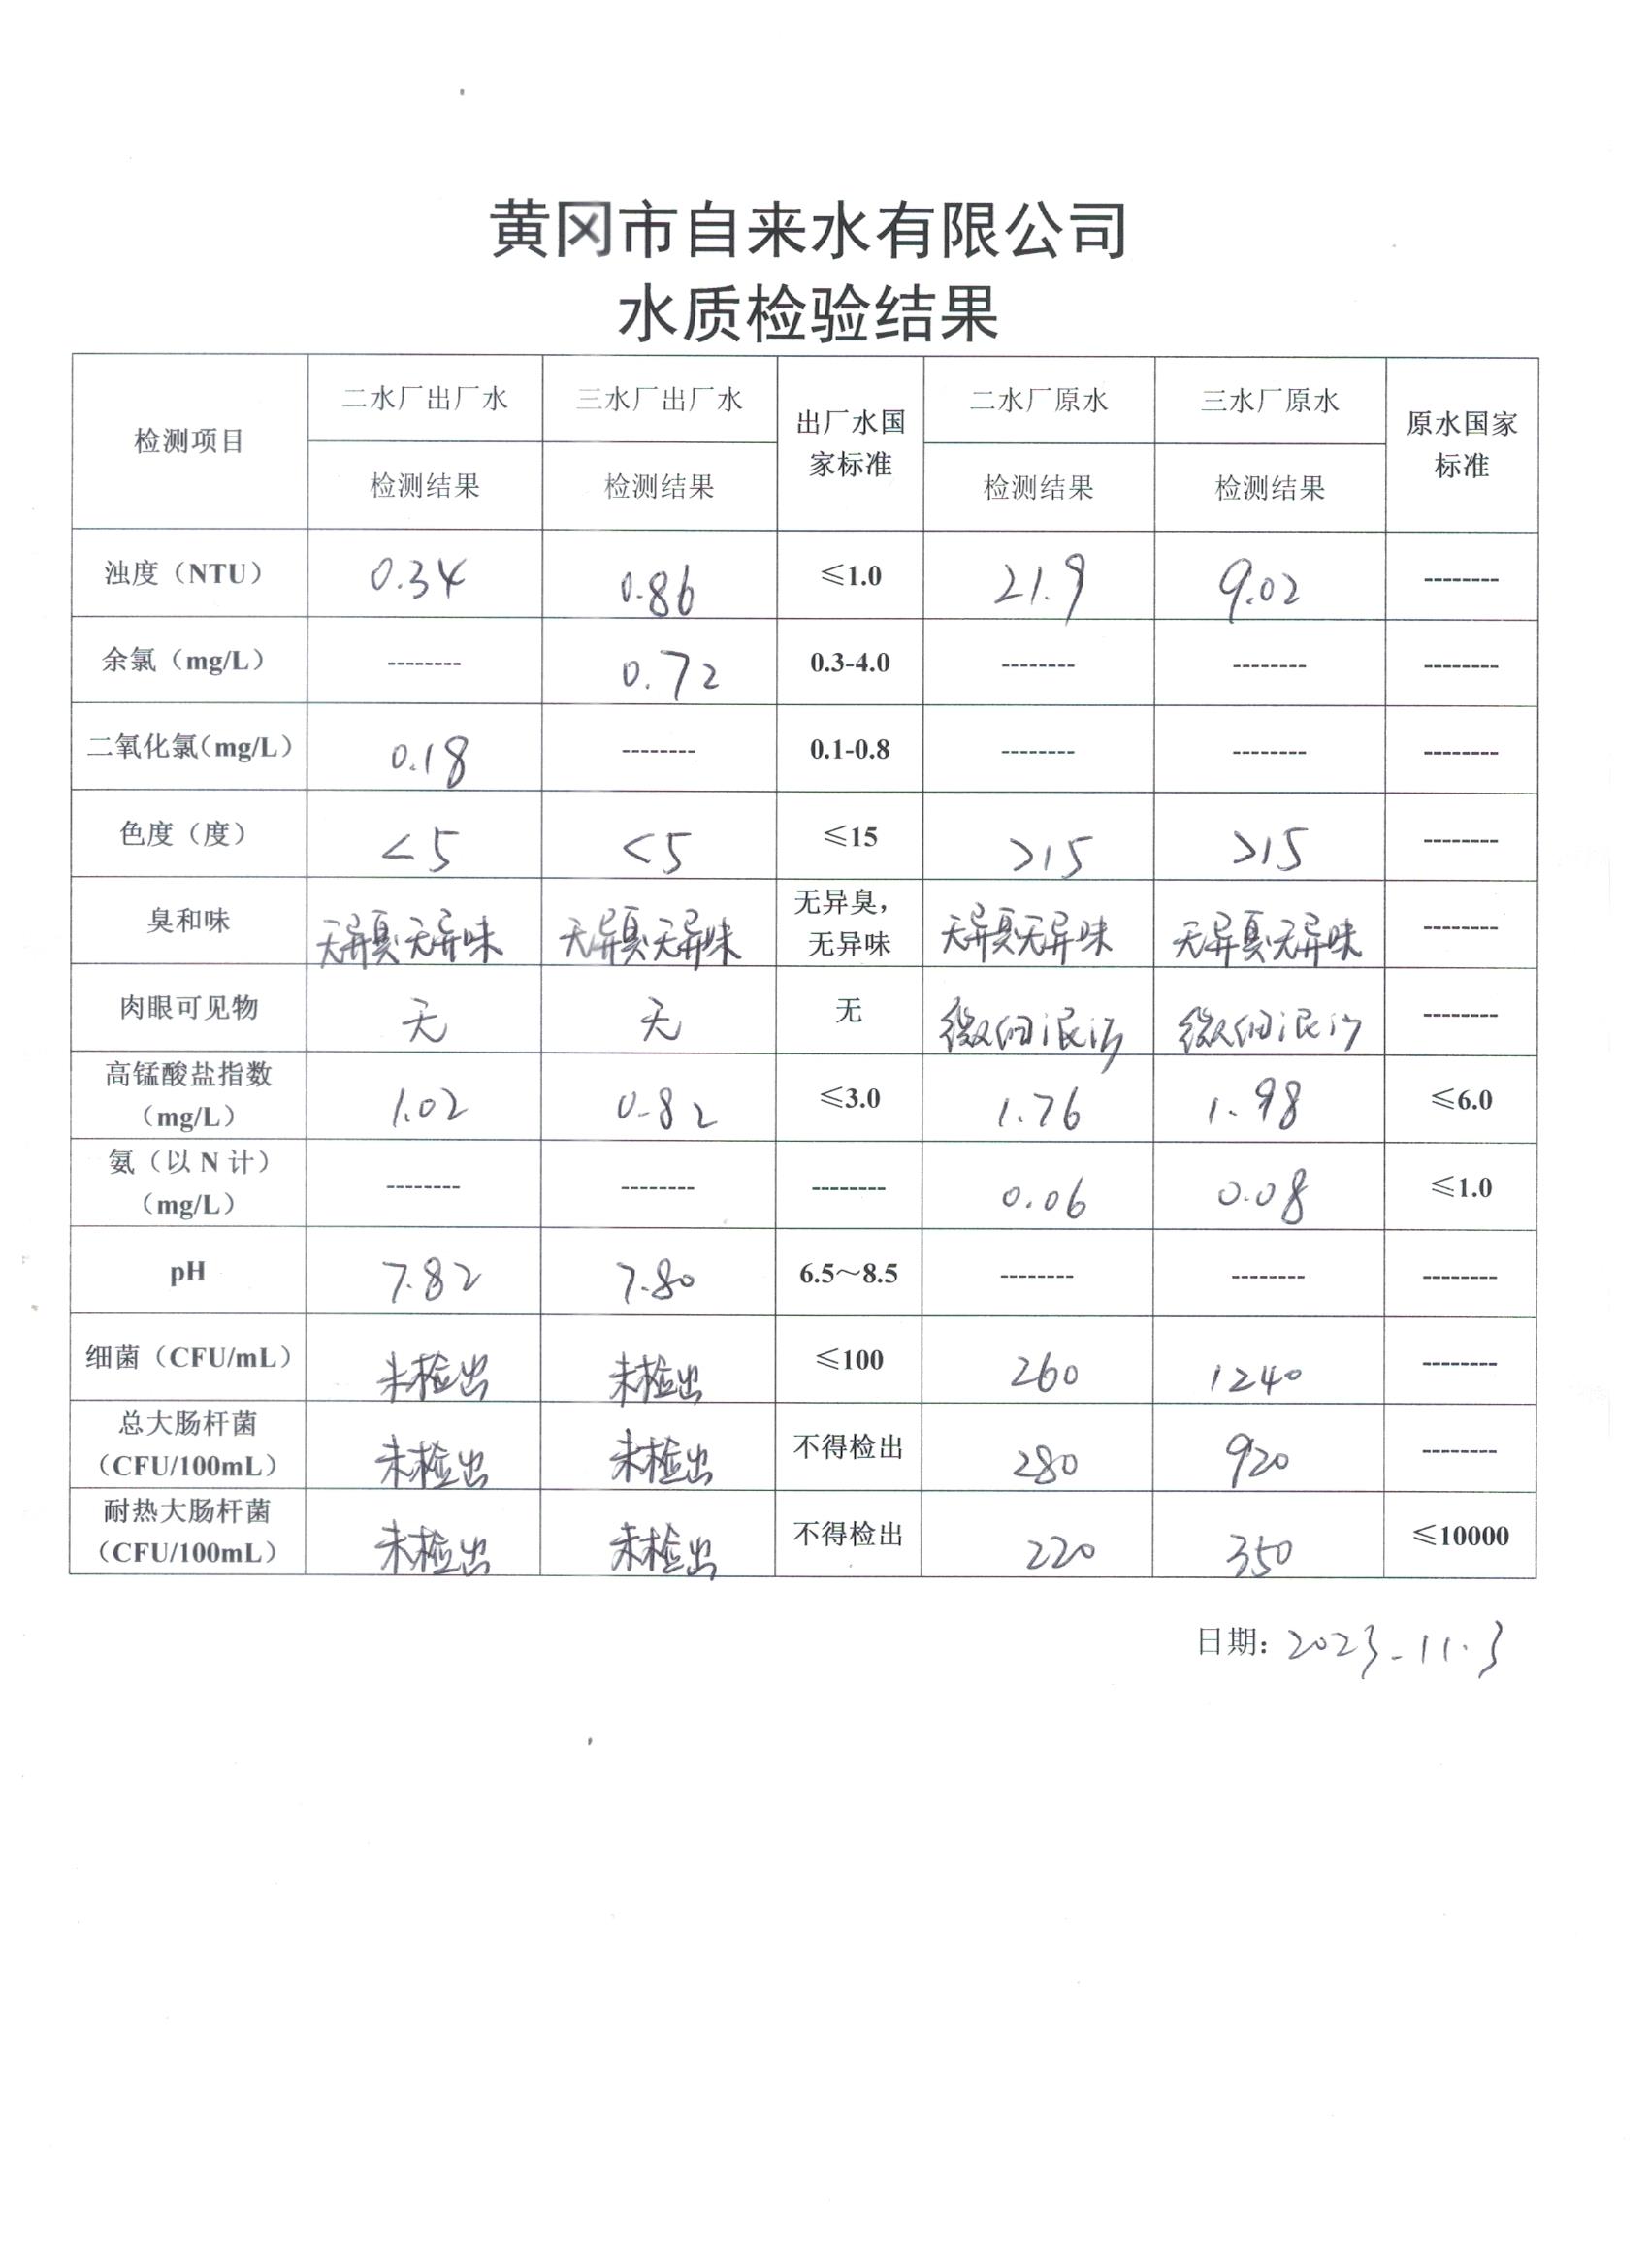 黄冈市自来水有限公司
水质检验结果
检测项目 二水厂出厂水 三水厂出厂水 出厂水国家标准 二水厂原水 三水厂原水 原水国家标准
检测结果 检测结果 检测结果 检测结果
浊度（NTU） 0.34 0.86 ≤1.0 21.9 9.02 --------
余氯（mg/L） -------- 0.72 0.3-4.0 -------- -------- --------
二氧化氯（mg/L） 0.18 -------- 0.1-0.8 -------- -------- --------
色度（度） <5 <5 ≤15 >15 >15 --------
臭和味 无异臭.无异味 无异臭.无异味 无异臭，无异味 无异臭无异味 无异臭.无异味 --------
肉眼可见物 无 无 无 微细泥沙 微细泥沙 --------
高锰酸盐指数（mg/L） 1.02 0.82 ≤3.0 1.76 1.98 ≤6.0
氨（以 N 计）（mg/L） -------- -------- -------- 0.06 0.08 ≤1.0
pH 7.82 7.80 6.5～8.5 -------- -------- --------
细菌（CFU/mL） 未检出 未检出 ≤100 260 1240 --------
总大肠杆菌（CFU/100mL） 未检出 未检出 不得检出 280 920 --------
耐热大肠杆菌（CFU/100mL） 未检出 未检出 不得检出 220 350 ≤10000
日期: 2023-11.3